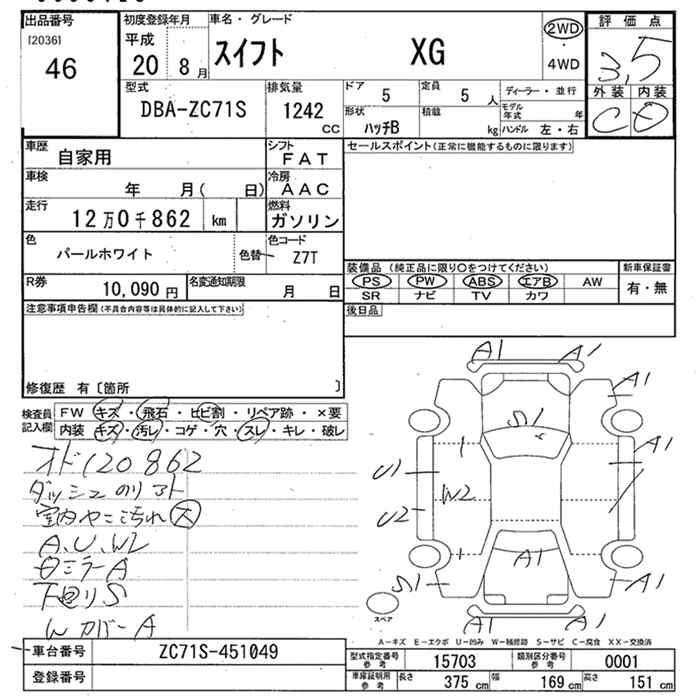 出品番号 初度登録年月 車名・グレード 評価点
[2036] 平成 スイフト XG 2WD ・ 4WD 3.5
46 20 8月
型式 排気量 ドア 5 定員 5人 ディーラー・並行 外装 内装
DBA-ZC71S 1242 CC 形状 ハッチB 積載 kg モデル年式 年 C D
ハンドル 左・右
車歴 自家用 シフト FAT セールスポイント(正常に機能するものに限ります)
車検 年 月( 日) 冷房 AAC
走行 12万0千862 km 燃料 ガソリン
色 パールホワイト 色替 色コード Z7T
装備品 (純正品に限り○をつけてください) 新車保証書
R券 10,090円 名変通知期限 月 日 PS PW ABS エアB AW 有・無
SR ナビ TV カワ
注意事項申告欄(不具合内容等は具体的に記入して下さい) 後日品
修復歴 有〔箇所 〕
検査員記入欄 FW キズ・飛石・ヒビ割・リペア跡・×要
内装 キズ・汚レ・コゲ・穴・スレ・キレ・破レ
オド120862
ダッシュのリアト
室内ヤニ汚れ大
A、U、W2
ミラーA
下回りS
カバーA
A1 A1
A1
S1
A1
U1
W2
U2
A1
S1 A1
A1 A1
スペア
A-キズ E-エクボ U-凹み W-補修跡 S-サビ C-腐食 XX-交換済
車台番号 ZC71S-451049
型式指定番号 参考 15703 類別区分番号 参考 0001
登録番号
車庫証明用 参考 長さ 375cm 幅 169cm 高さ 151cm